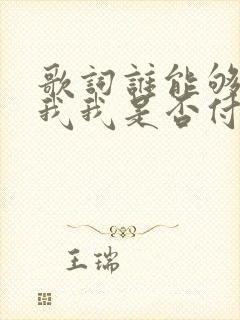 歌詞誰能够
我我是否付
王瑞